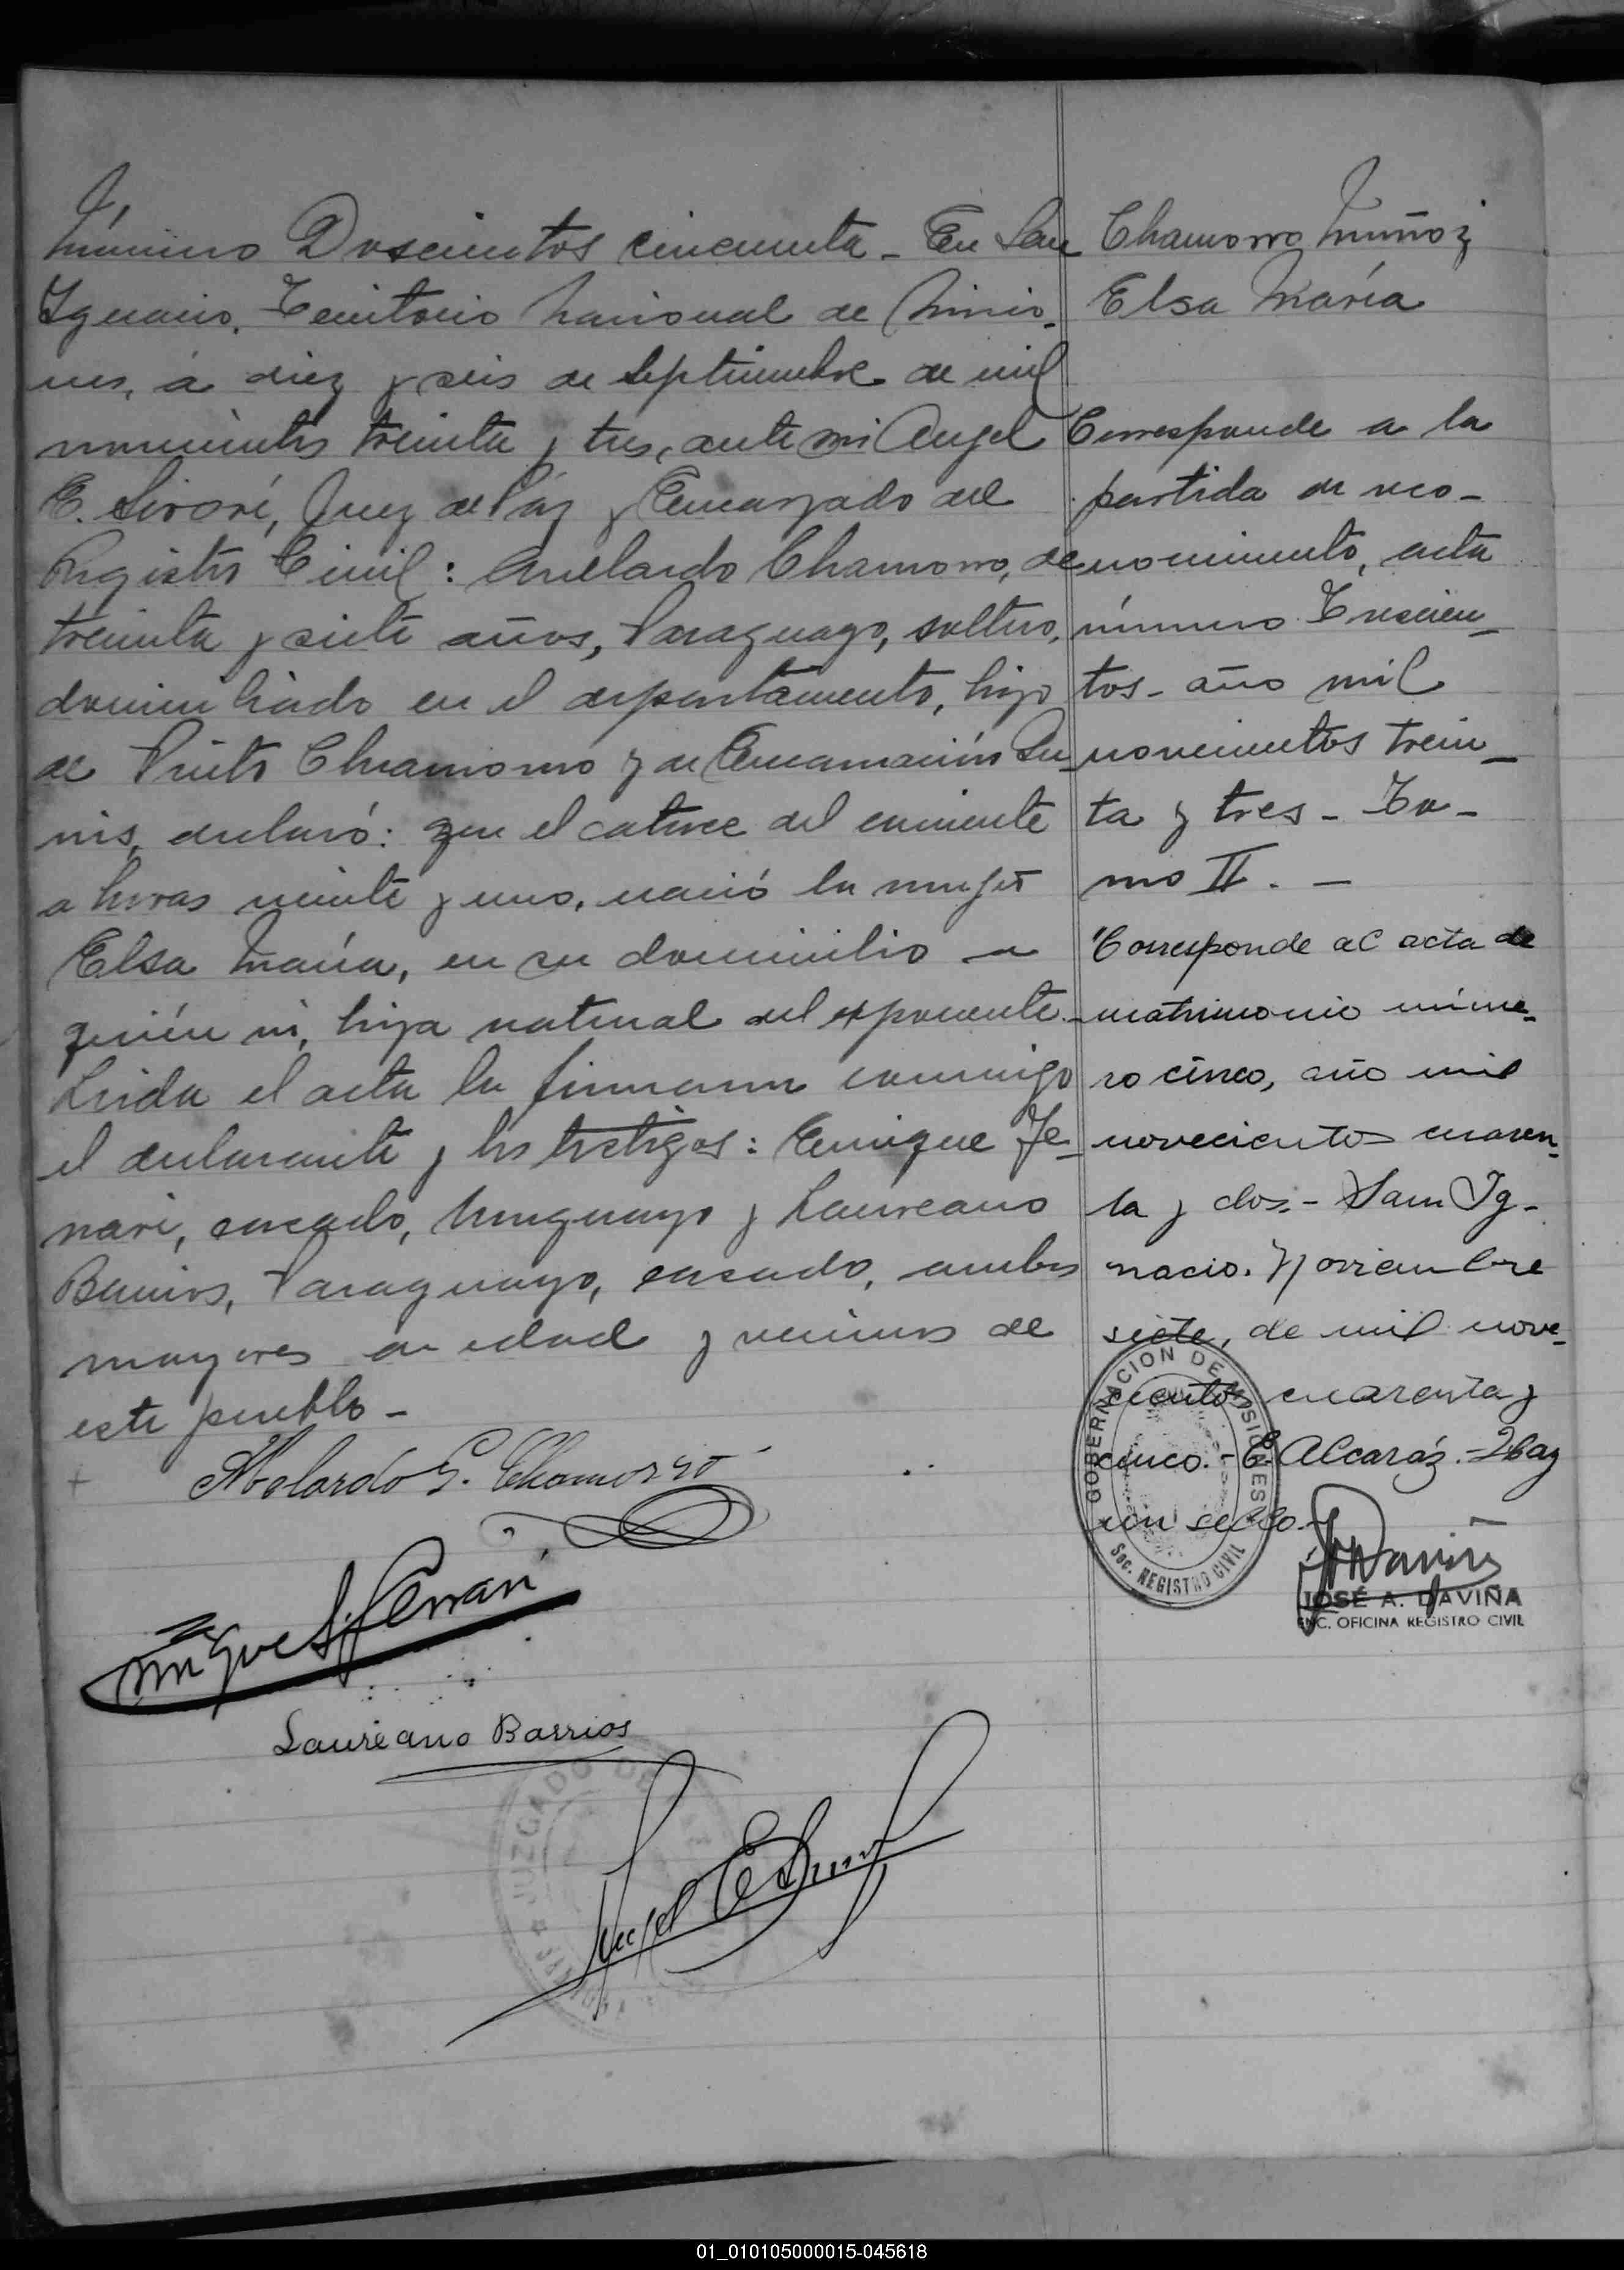 Número Doscientos cincuenta - En San
Ignacio, Territorio Nacional de Misio-
nes, á diez y seis de Septiembre de mil
novecientos treinta y tres, ante mi Angel
E. Sivoré, Juez de Páz y Encargado del
Registro Civil: Avelardo Chamorro, de
treinta y siete años, Paraguayo, soltero,
domiciliado en el departamento, hijo
de Chamorro y de Encarnación
declaró: que el catorce del corriente
a horas veinte y uno, nació la mujer
Elsa María, en su domicilio a
quién ví, hija natural del exponente.-
Leida el acta la firmaron conmigo
el declarante y los testigos: Enrique Fe-
rrari, casado, Uruguayo y Laureano
Barrios, Paraguayo, casado, ambos
mayores de edad y vecinos de
este pueblo -
Abelardo G. Chamorro
Enrique Ferrari
Laureano Barrios
JUZGADO DE
Angel E
Chamorro Muñoz
Elsa María
Corresponde a la
partida de reco-
nocimiento, acta
número Trescien-
tos- año mil
novecientos trein-
ta y tres - To-
mo II. -
Corresponde al acta de
matrimonio núme-
ro cinco, año mil
novecientos cuaren-
ta y dos.- San Ig-
nacio. Noviembre
siete, de mil nove-
cientos cuarenta y
cinco.- E. Alcaráz.- Hay
un sello.-
GOBERNACION DE MISIONES
Sec. REGISTRO CIVIL
JOSÉ A. DAVIÑA
ENC. OFICINA REGISTRO CIVIL
01_010105000015-045618